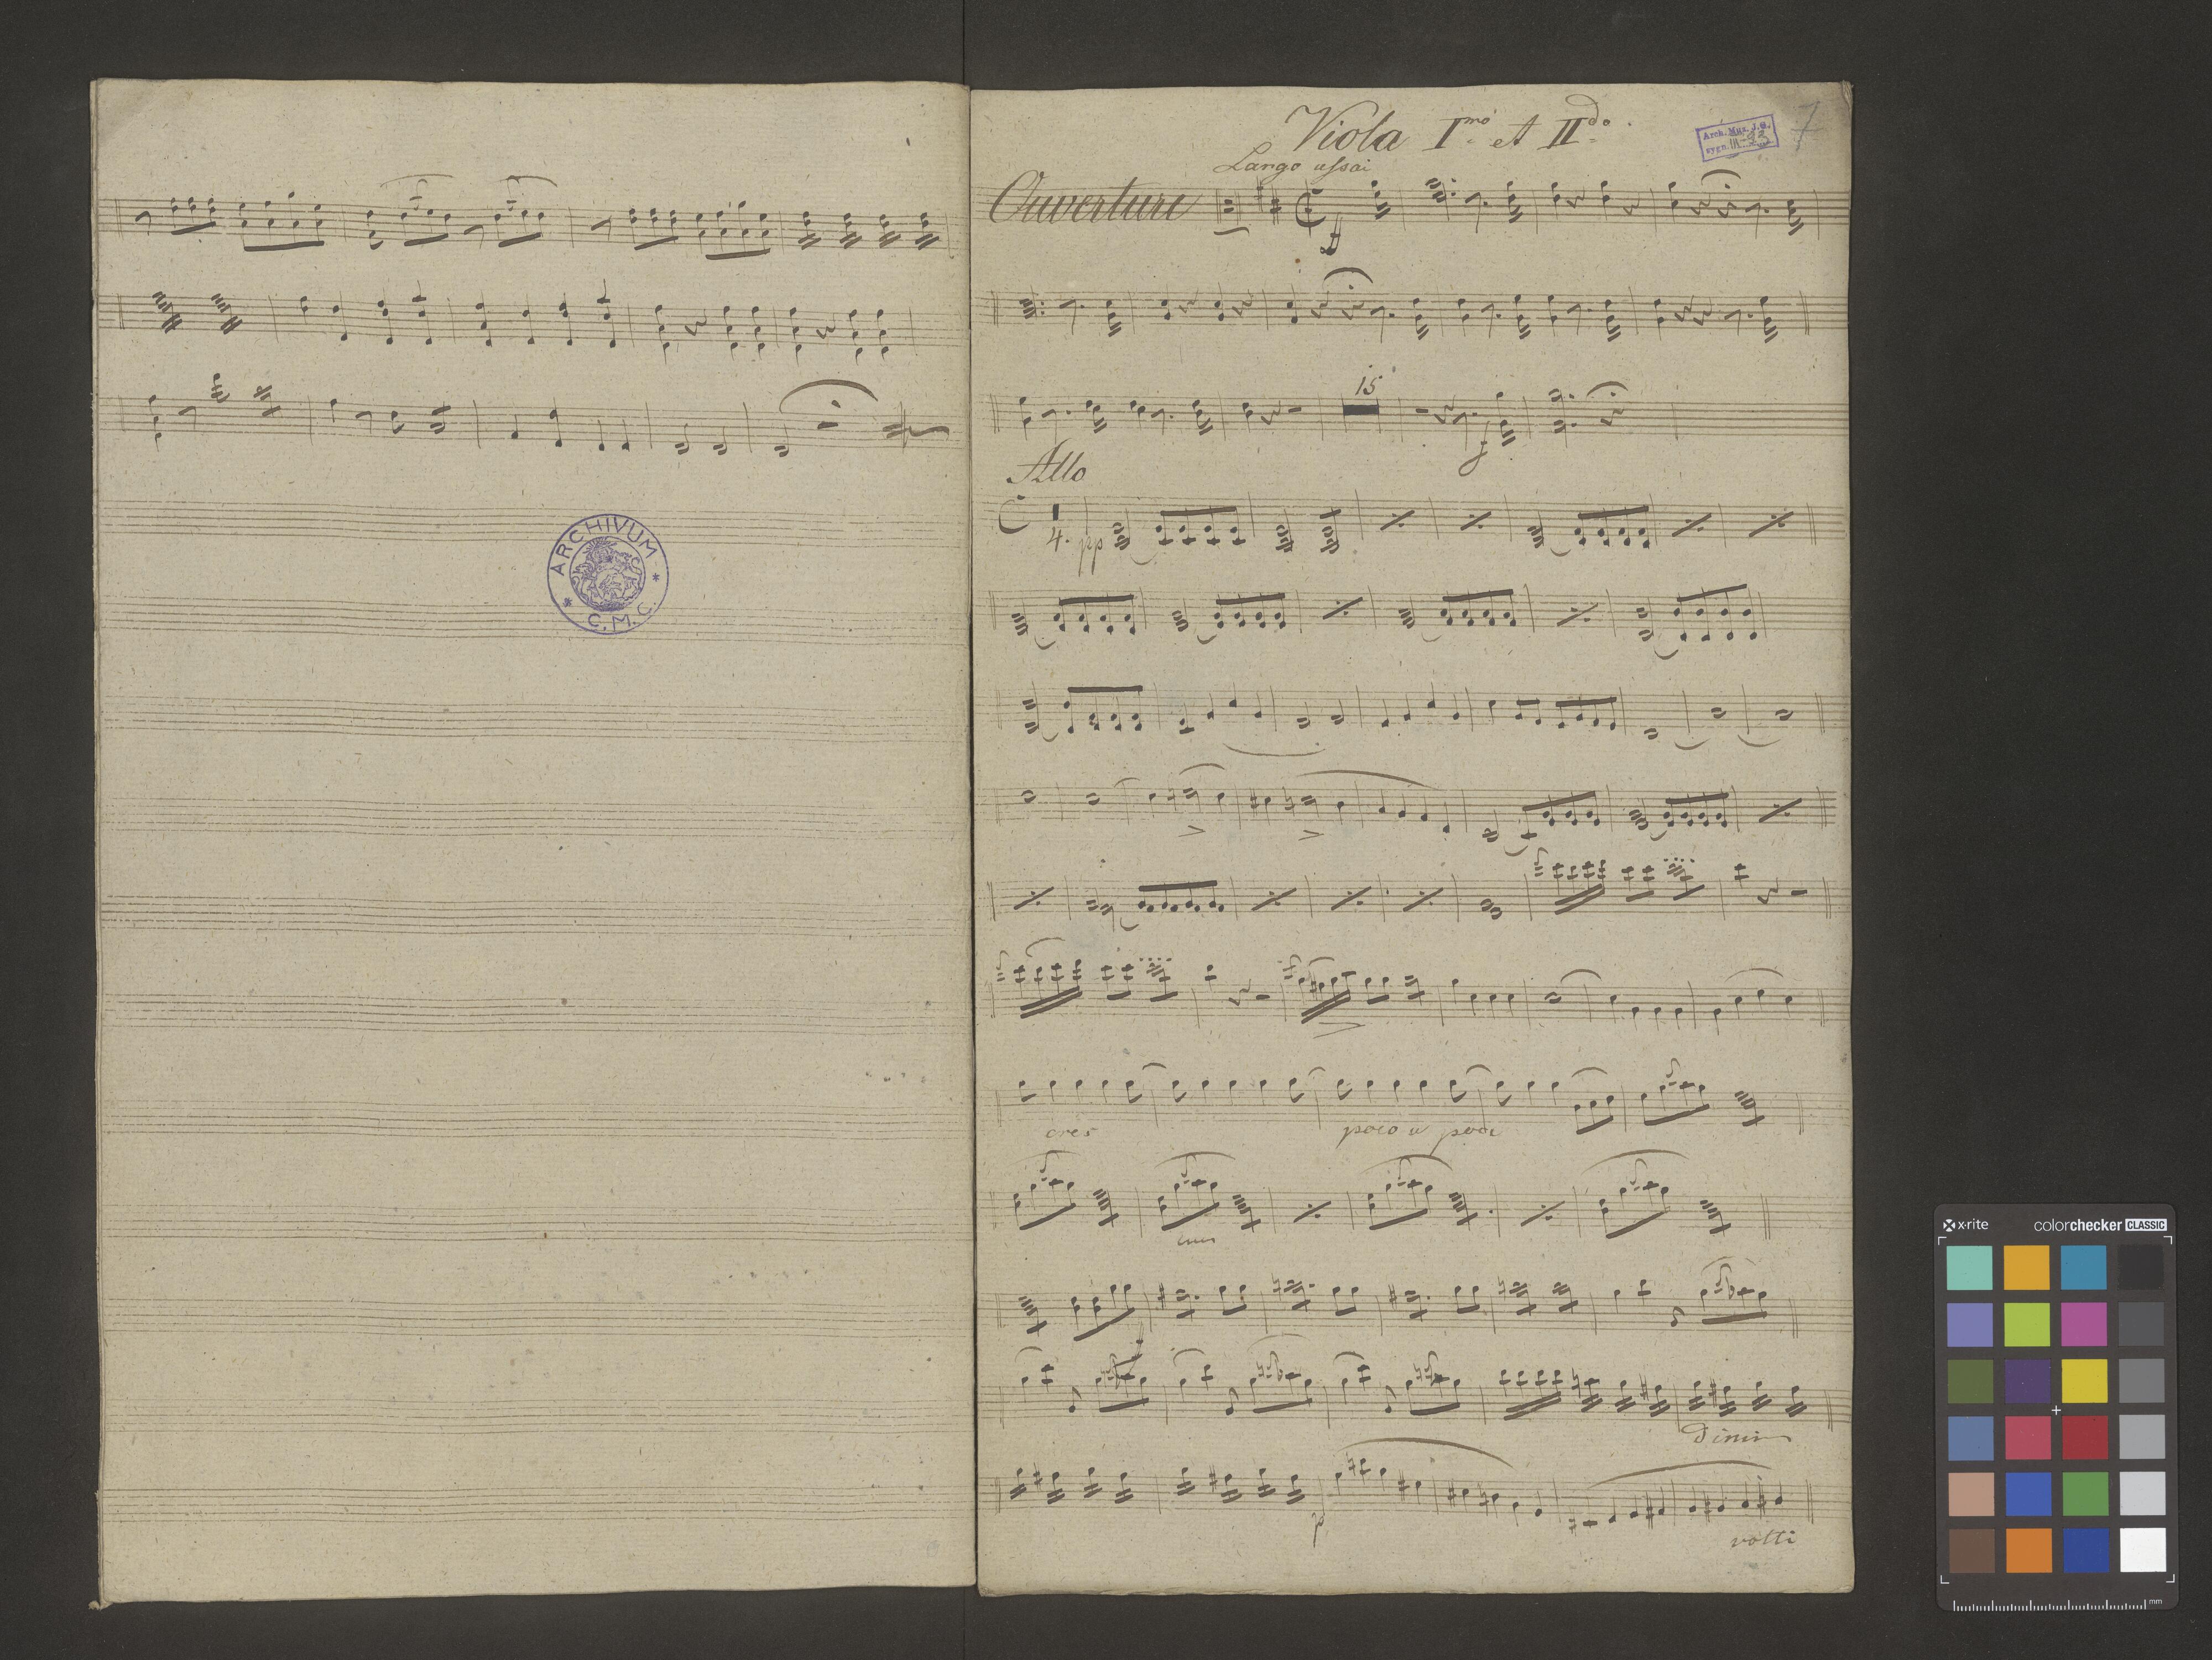 ARCHIVUM
* C.M.C. *
Viola I.mo et II.do
Arch. Muz. J.G.
sygn. III-93
7
Largo assai
Ouverture
ff
15
f
Allo
4. pp
cres
poco a poco
f
Dimin
p
volti
x-rite
colorchecker CLASSIC
mm